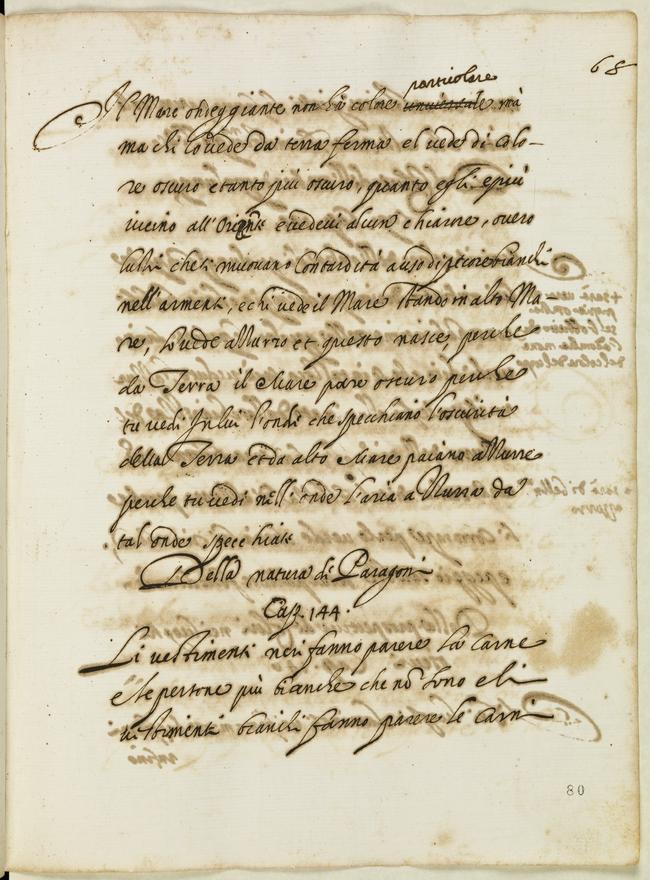 68
particolare
Il Mare ondeggiante non hà colore universale mà
ma chi lo vede da terra ferma el vede di colo-
re oscuro e tanto più oscuro, quanto egli e più
vicino all' e vedevi alcun chiarore, overo
lustri che si muovano con tardità a uso di pecore bianche
nell'armenti, e chi vede il Mare stando in alto Ma-
re, lo vede azzurro et questo nasce, perche
da Terra il Mare pare oscuro perche
tu vedi In lui l'onde che specchiano l'oscurità
della Terra et da alto Mare paiano azzurre
perche tu vedi nell'onde l'aria azzurra da
tal onde specchiate
Della natura de Paragoni
Cap. 144.
Li vestimenti neri fanno parere la carne
e le persone più bianche che nō sono e li
vestimenti bianchi fanno parere le carni
80